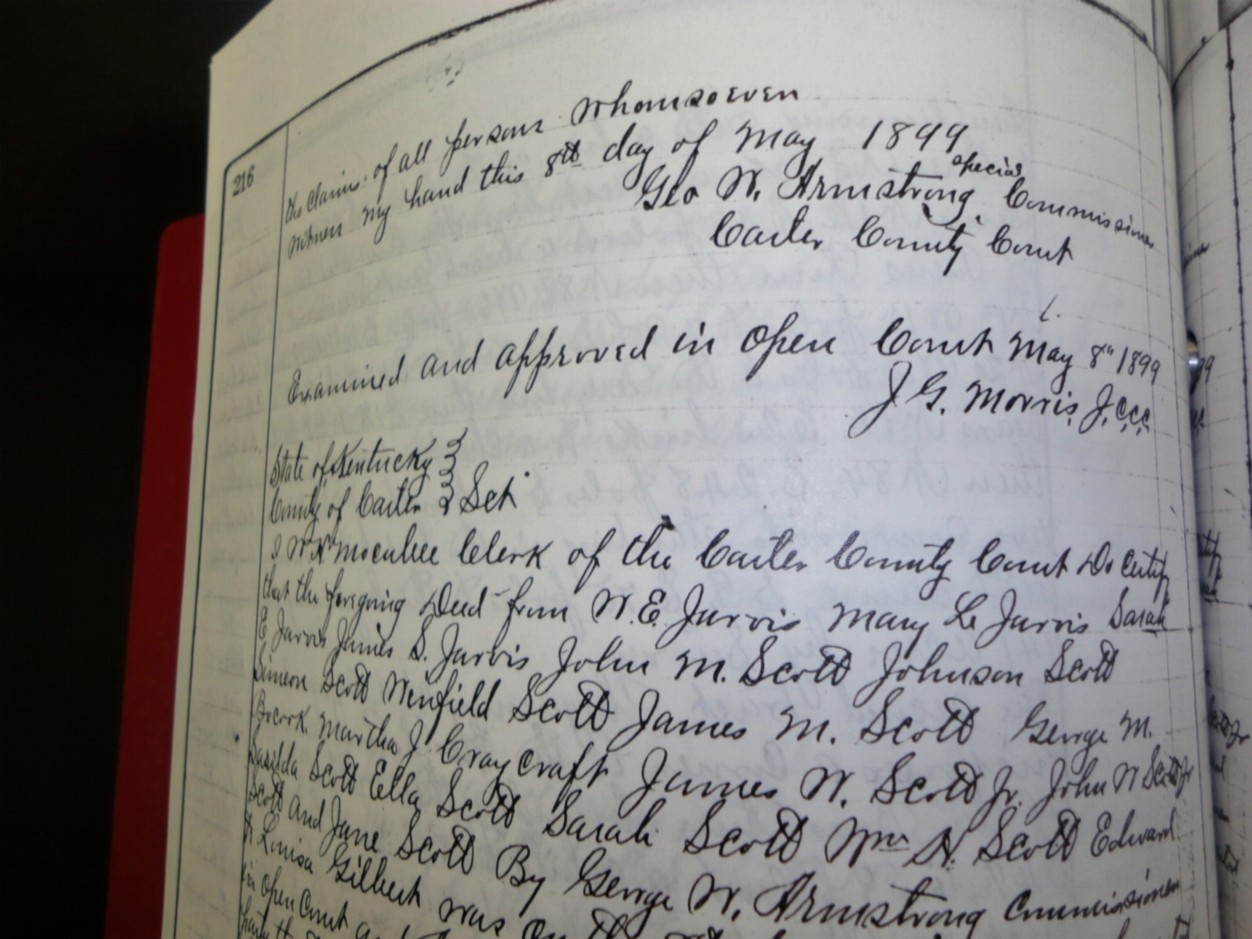 216
the claims of all persons whomsoever
witness my hand this 8th day of May 1899
Geo W. Armstrong special Commissioner
Carter County Court
Examined and approved in open Court May 8th 1899
J G. Morris, J.C.C.C.
State of Kentucky
County of Carter Sct
I Clerk of the Carter County Court Do certify
that the foregoing Deed from W. E. Jarvis Mary L Jarvis Sarah
E Jarvis James S. Jarvis John M. Scott Johnson Scott
Simeon Scott Winfield Scott James M. Scott George M.
Bocook Martha J. Craycraft James W. Scott Jr. John W Scott Jr
Scott Ella Scott Sarah Scott Wm H. Scott Edward
Scott and Jane Scott By George W. Armstrong Commissioner
Louisa Gilbert was on the
in open Court